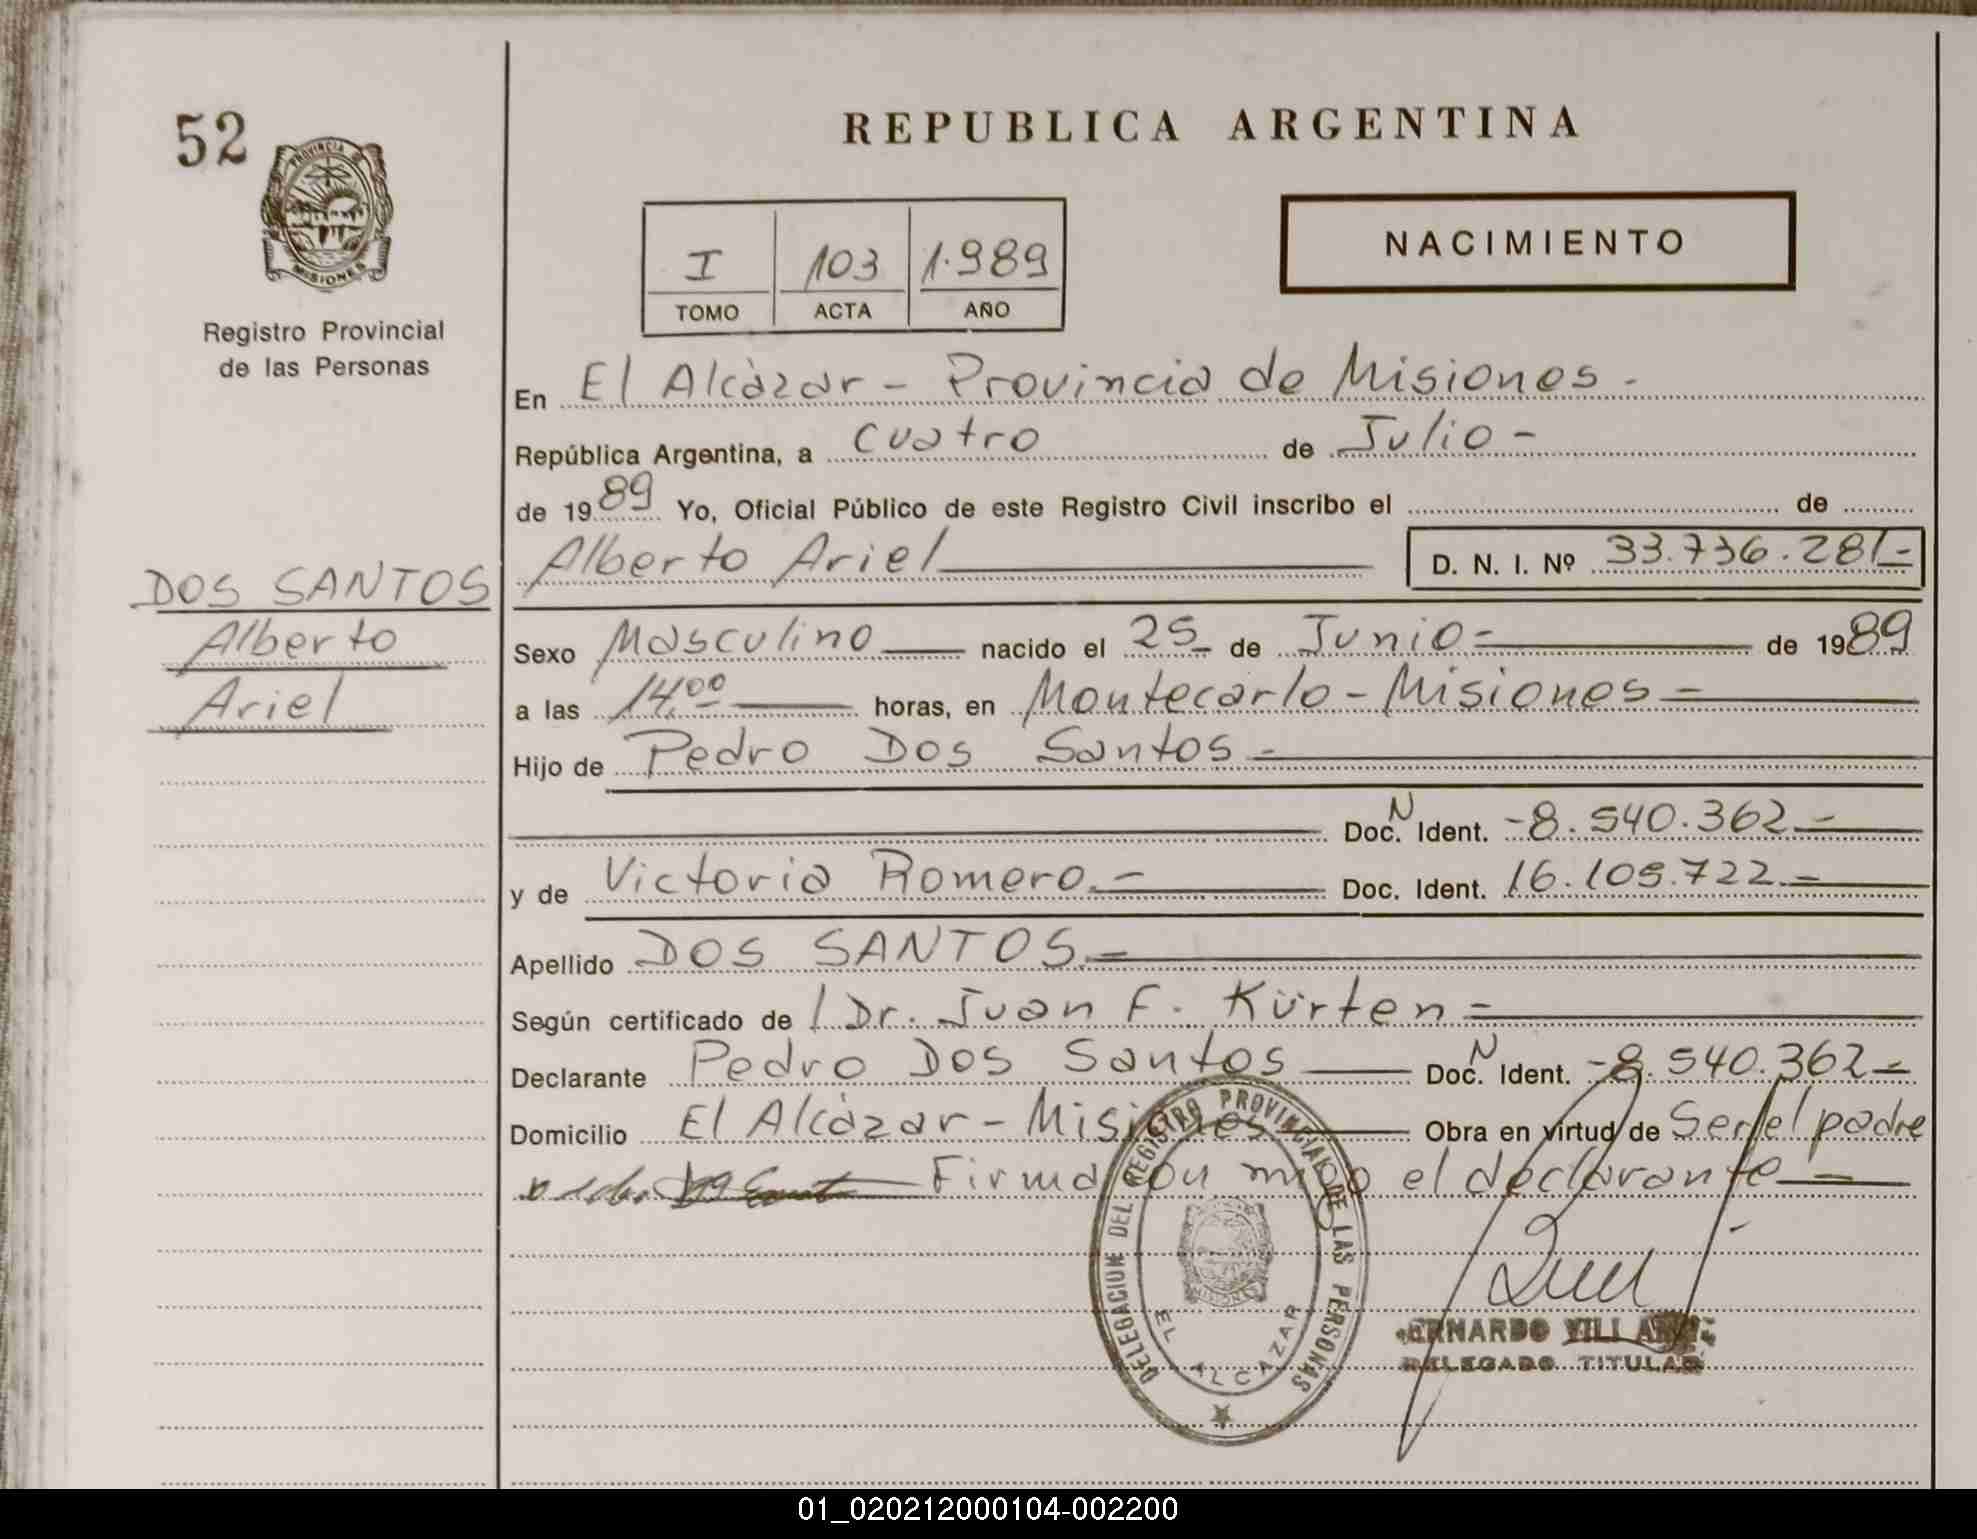 52
PROVINCIA DE
MISIONES
Registro Provincial
de las Personas
REPUBLICA ARGENTINA
I 103 1.989
TOMO ACTA AÑO
NACIMIENTO
En El Alcàzar - Provincia de Misiones -
República Argentina, a cuatro de Julio -
de 1989 Yo, Oficial Público de este Registro Civil inscribo el de
Alberto Ariel D. N. I. Nº 33.736.281-
DOS SANTOS
Alberto
Ariel
Sexo Masculino nacido el 25 de Junio = de 1989
a las 14,00 horas, en Montecarlo - Misiones -
Hijo de Pedro Dos Santos -
Doc. N Ident. -8.540.362 -
y de Victoria Romero. - Doc. Ident. 16.109.722 -
Apellido DOS SANTOS. =
Según certificado de / Dr. Juan F. Kürten =
Declarante Pedro Dos Santos Doc. N Ident. -8.540.362 -
Domicilio El Alcàzar - Misiones Obra en virtud de Ser el padre
Firma con migo el declarante -
DELEGACION DEL REGISTRO PROVINCIAL DE LAS PERSONAS
EL ALCAZAR
DELEGADO TITULAR
01_020212000104-002200